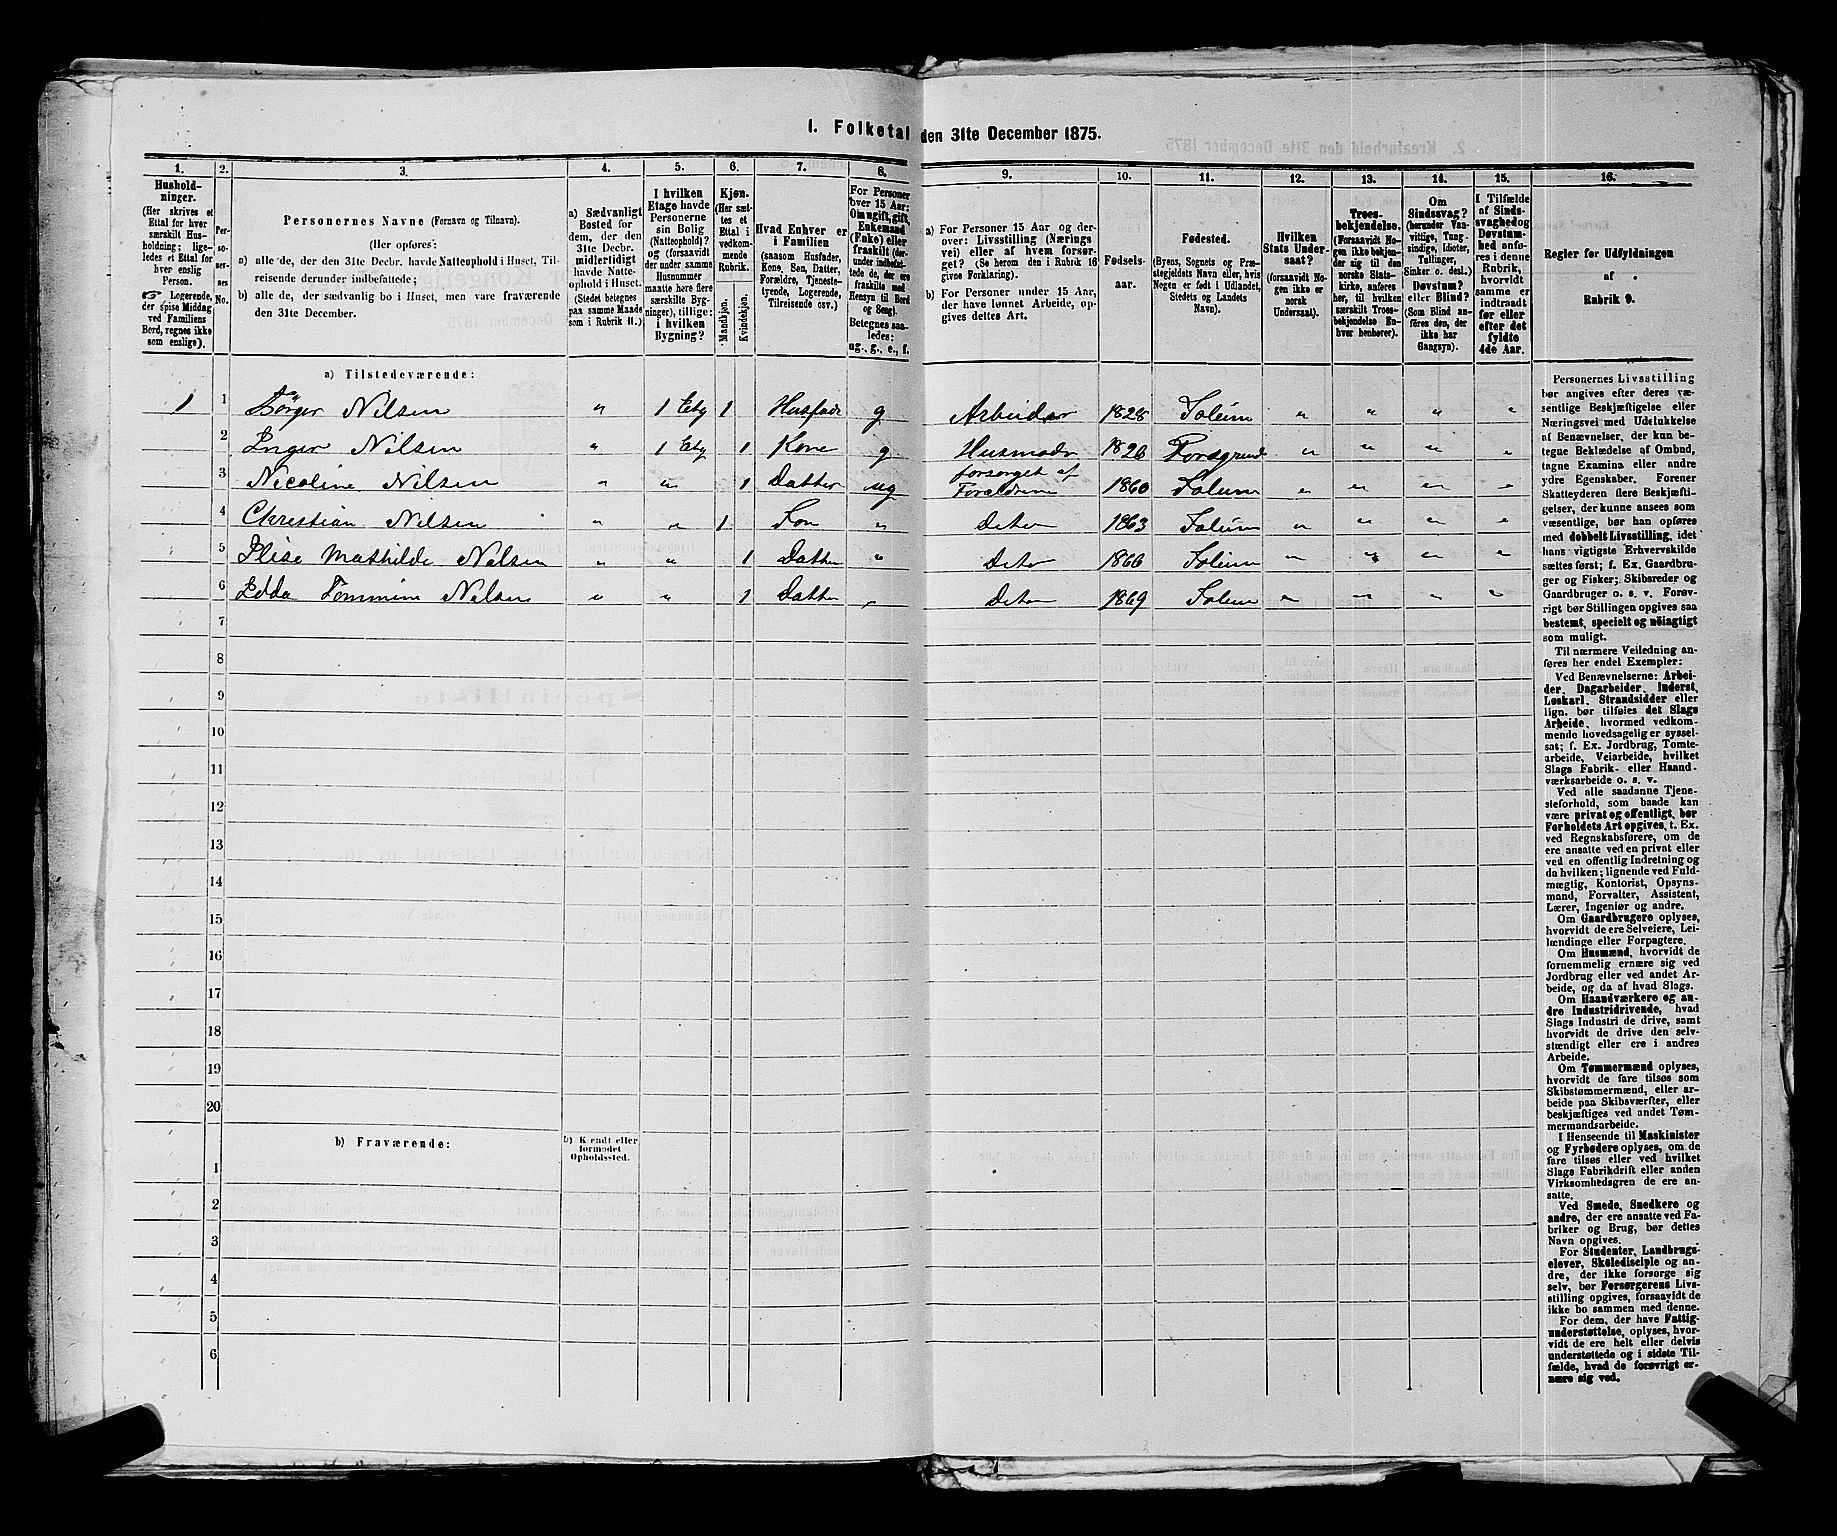 1. Folketal den 31te December 1875.
1.
2.
3.
4.
5.
6.
7.
8.
9.
10.
11.
12.
13.
14.
15.
16.
Hushold-
ninger.
(Her skrives et
Ettal for hver
særskilt Hus-
holdning; lige-
ledes et Ettal for
hver enslig
Person.
☞ Logerende,
der spise Middag
ved Familiens
Bord, regnes ikke
som enslige).
Per-
so-
ner-
nes
No.
Personernes Navne (Fornavn og Tilnavn).
(Her opføres:
a) alle de, der den 31te Decbr. havde Natteophold i Huset, Til-
reisende derunder indbefattede;
b) alle de, der sædvanlig bo i Huset, men vare fraværende
den 31te December.
a) Sædvanligt
Bosted for
dem, der den
31te Decbr.
midlertidigt
havde Natte-
ophold i Huset.
(Stedet betegnes
paa samme Maade
som i Rubrik 11.)
I hvilken
Etage havde
Personerne
sin Bolig
(Natteophold)?
og (forsaavidt
der under samme
Husnummer
maatte høre flere
særskilte Byg-
ninger), tillige:
i hvilken
Bygning?
Kjøn.
(Her sæt-
tes et
Ettal i
vedkom-
mende
Rubrik.
Mandkjøn.
Kvindekjøn.
Hvad Enhver er
i Familien
(saasom Husfader,
Kone, Søn, Datter,
Forældre, Tjeneste-
tyende, Logerende,
Tilreisende osv.)
For Personer
over 15 Aar:
Om ugift, gift,
Enkemand
(Enke) eller
fraskilt (der-
under indbefat-
tede de, der ere
fraskilte med
Hensyn til Bord
og Seng).
Betegnes saa-
ledes:
ug., g., e., f.
a) For Personer 15 Aar og der-
over: Livsstilling (Nærings-
vei) eller af hvem forsør-
get? (Se herom den i Rubrik 16
givne Forklaring).
b) For Personer under 15 Aar,
der have lønnet Arbeide, op-
gives dettes Art.
Fødsels-
aar.
Fødested.
(Byens, Sognets og Præ-
stegjeldets Navn eller, hvis
Nogen er født i Udlandet,
Stedets og Landets
Navn).
Hvilken
Stats Under-
saat?
(forsaavidt No-
gen ikke er
norsk
Undersaat).
Troes-
bekjendelse.
(Forsaavidt No-
gen ikke bekjen-
der sig til den
norske Stats-
kirke, anføres
her, til hvilken
særskilt Troes-
bekjendelse En-
hver henhører).
Om
Sindssvag?
(herunder Van-
vittige, Tung-
sindige, Idioter,
Tullinger,
Sinker o. desl.)
Døvstum?
eller Blind?
(Som Blind an-
føres den, der
ikke har
Gangsyn).
I Tilfælde
af Sinds-
svaghed og
Døvstum-
hed anfø-
res i denne
Rubrik,
hvorvidt
samme er
indtraadt
før eller
efter det
fyldte
4de Aar.
Regler for Udfyldningen
af
Rubrik 9.
a) Tilstedeværende:
1 1 Börger Nilsen " 1 Etg 1 Husfadr g Arbeider 1828 Solum " " " "
2 Inger Nilsen " 1 Etg 1 Kone g Husmodr 1826 Porsgrund " " " "
3 Nicoline Nilsen " " 1 Datter ug forsorget af Foraldrene 1860 Solum " " " "
4 Christian Nilsen " " 1 Son " Deto 1863 Solum " " " "
5 Elise Mathilde Nilsen " " 1 Datter " Deto 1866 Solum " " " "
6 Edda Tommine Nilsen " " 1 Datter " Deto 1869 Solum " " " "
7
8
9
10
11
12
13
14
15
16
17
18
19
20
b) Fraværende:
b) Kjendt eller
formodet
Opholdssted.
1
2
3
4
5
6
Personernes Livsstilling
bør angives efter deres væ-
sentlige Beskjæftigelse eller
Næringsvei med Udelukkelse
af Benævnelser, der kun be-
tegne Beklædelse af Ombud,
tagne Examina eller andre
ydre Egenskaber. Forener
Skatteyderen flere Beskjæfti-
gelser, der kunne ansees som
væsentlige, bør han opføres
med dobbelt Livsstilling, idet
hans vigtigste Erhvervskilde
sættes først; f. Ex. Gaardbru-
ger og Fisker; Skibsreder og
Gaardbruger o. s. v. Forøv-
rigt bør Stillingen opgives saa
bestemt, specielt og nøiagtigt
som muligt.
Til nærmere Veiledning an-
føres her endel Exempler:
Ved Benævnelserne: Arbei-
der, Dagarbeider, Inderst,
Løskarl, Strandsidder eller
lign. bør tilføies det Slags
Arbeide, hvormed vedkom-
mende hovedsagelig er syssel-
sat; f. Ex. Jordbrug, Tomte-
arbeide, Veiarbeide, hvilket
Slags Fabrik- eller Haand-
værksarbeide o. s. v.
Ved alle saadanne Tjene-
steforhold, som baade kan
være privat og offentligt, bør
Forholdets Art opgives, t. Ex.
ved Regnskabsførere, om de
ere ansatte ved en privat eller
ved en offentlig Indretning og
da hvilken; lignende ved Fuld-
mægtig, Kontorist, Opsyns-
mand, Forvalter, Assistent,
Lærer, Ingeniør og andre.
Om Gaardbrugere oplyses,
hvorvidt de ere Selveiere, Lei-
lændinge eller Forpagtere.
Om Husmænd, hvorvidt de
fornemmelig ernære sig ved
Jordbrug eller ved andet Ar-
beide, og da af hvad Slags.
Om Haandværkere og an-
dre Industridrivende, hvad
Slags Industri de drive, samt
hvorvidt de drive den selv-
stændigt eller ere i andres
Arbeide.
Om Tømmermænd oplyses,
hvorvidt de fare tilsøs som
Skibstømmermænd, eller ar-
beide paa Skibsværfter, eller
beskjæftiges ved andet Tøm-
mermandsarbeide.
I Henseende til Maskinister
og Fyrbødere oplyses, om de
fare tilsøs eller ved hvilket
Slags Fabrikdrift eller anden
Virksomhedsgren de ere an-
satte.
Ved Smede, Snedkere og
andre, der ere ansatte ved Fa-
briker og Brug, bør dettes
Navn opgives.
For Studenter, Landbrugs-
elever, Skoledisciple og an-
dre, der ikke forsørge sig
selv, bør Forsørgerens Livs-
stilling opgives, forsaavidt de
ikke bo sammen med denne.
For dem, der have Fattig-
understøttelse, oplyses, hvor-
vidt de ere helt eller delvis
understøttede og i sidste Til-
fælde, hvad de forøvrigt er-
nære sig ved.